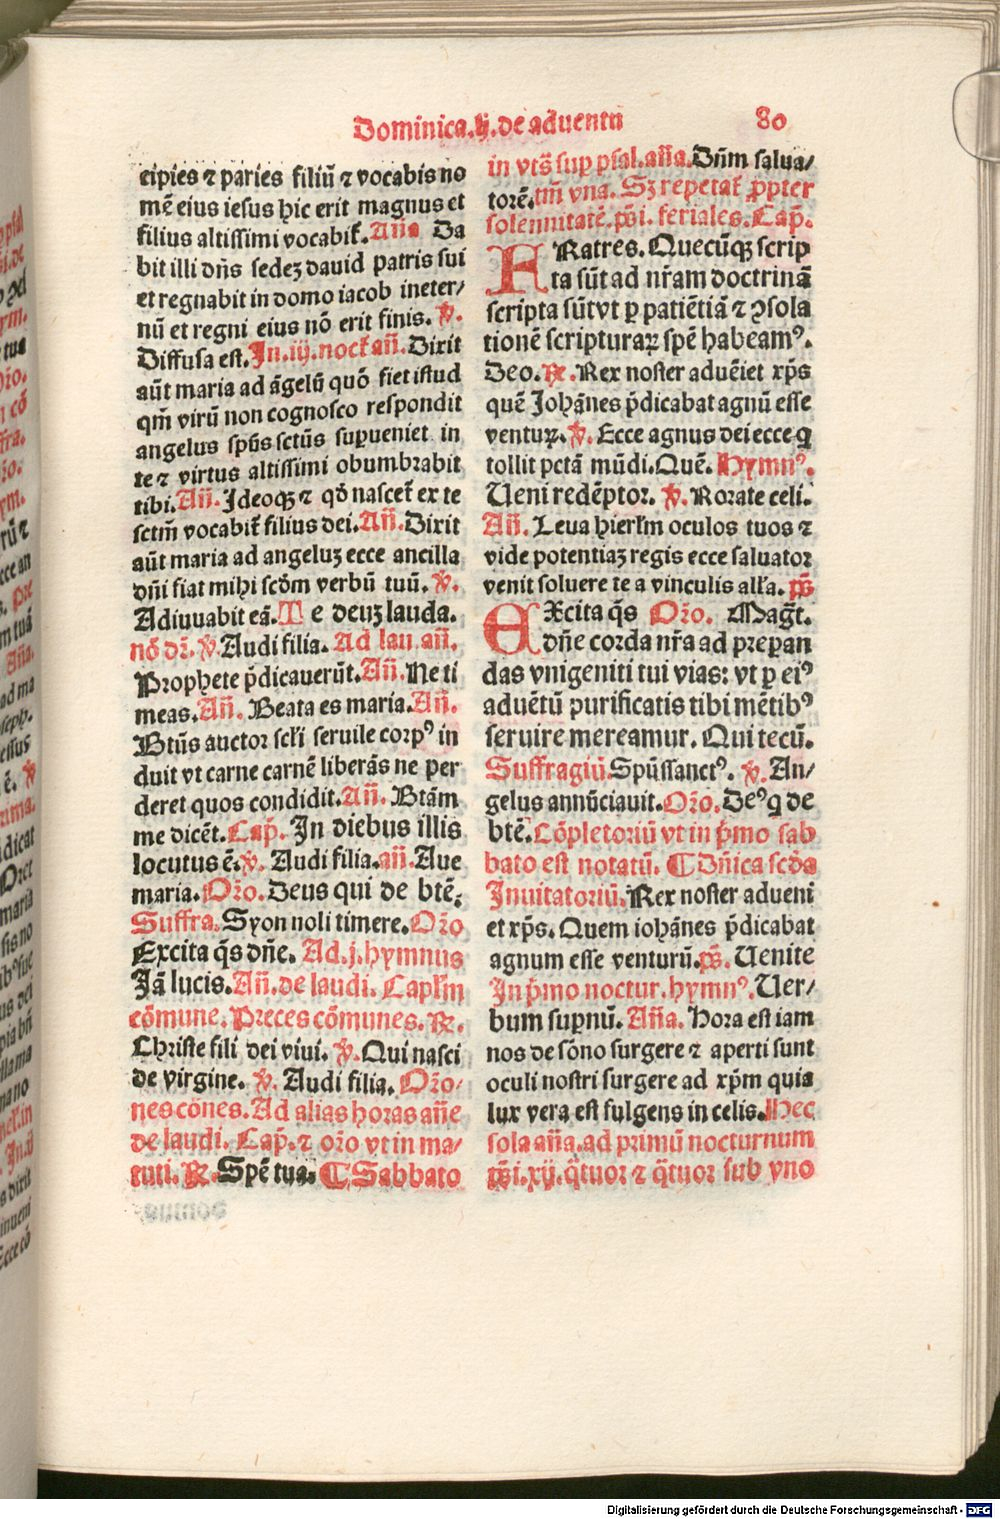 Dominica.ij.de aduentu 80
cipies ⁊ paries filiū ⁊ vocabis no
mē eius iesus hic erit magnus et
filius altissimi vocabit̄. Aña Da
bit illi dn̄s sedeꝫ dauid patris sui
et regnabit in domo iacob ineter/
nū et regni eius nō erit finis. ℣.
Diffusa est. In .iij. noct̄ añ. Dixit
aūt maria ad āgelū quō fiet istud
qm̄ virū non cognosco respondit
angelus sp̄ūs sctūs superueniet in
te ⁊ virtus altissimi obumbrabit
tibi. Añ. Ideoqꝫ ⁊ qḋ nascet̄ ex te
sctm̄ vocabit̄ filius dei. Añ. Dixit
aūt maria ad angeluꝫ ecce ancilla
dn̄i fiat mihi scḋm verbū tuū. ℣.
Adiuuabit eā. Te deuꝫ lauda.
nō dr̄. ℣. Audi filia. Ad lau. añ.
Prophete p̄dicauerūt. Añ. Ne ti
meas. Añ. Beata es maria. Añ.
Btūs auctor scl̄i seruile corpꝰ in
duit vt carne carnē liberās ne per
deret quos condidit. Añ. Btām
me dicēt. Cap̄. In diebus illis
locutus ē. ℣. Audi filia. añ. Aue
maria. Oꝛ̄o. Deus qui de btē;
Suffra. Syon noli timere. Oꝛ̄o
Excita q̄s dn̄e. Ad .j. hymnus
Jā lucis. Añ. de laudi. Capl̄m
cōmune. Preces cōmunes. ℟.
Christe fili dei viui. ℣. Qui nasci
de virgine. ℣. Audi filia. Oꝛ̄o/
nes cōnes. Ad alias horas añe
de laudi. Cap̄. ⁊ oꝛ̄o vt in ma/
tuti. ℟. Spē tua. ⸿ Sabbato
in vts̄ sup psal. aña. Dn̄m salua/
torē. tm̄ vna. Sꝫ repetat̄ ꝓpter
solennitatē. ps̄i. feriales. Cap̄.
FRatres. Quecūqꝫ scrip
ta sūt ad nr̄am doctrinā
scripta sūt vt ꝑ patiētiā ⁊ ꝯsola
tionē scripturaꝝ spē habeamꝰ.
Deo. ℟. Rex noster aduēiet xp̄s
quē Johānes p̄dicabat agnū esse
venturꝝ. ℣. Ecce agnus dei ecce q
tollit pctā mūdi. Quē. Hymnꝰ.
Ueni redēptor. ℣. Rorate celi.
Añ. Leua hierl̄m oculos tuos ⁊
vide potentiaꝫ regis ecce saluator
venit soluere te a vinculis all̄a. ps̄
EXcita q̄s Oꝛ̄o. Maḡt.
dn̄e corda nr̄a ad prepan
das vnigeniti tui vias: vt ꝑ eiꝰ
aduētū purificatis tibi mētibꝰ
seruire mereamur. Qui tecū.
Suffragiū. Spūssanctꝰ. ℣. An/
gelus annūciauit. Oꝛ̄o. Deꝰ q de
btē. Cōpletoriū vt in p̄mo sab
bato est notatū. ⸿ Dn̄ica scḋa
Inuitatoriū. Rex noster adueni
et xp̄s. Quem iohānes p̄dicabat
agnum esse venturū. ps̄. Uenite
In p̄mo noctur. hymnꝰ. Uer/
bum supnū. Aña. Hora est iam
nos de sōno surgere ⁊ aperti sunt
oculi nostri surgere ad xp̄m quia
lux vera est fulgens in celis. Hec
sola aña. ad primū nocturnum
ps̄i. xij. q̄tuor ⁊ q̄tuor sub vno
Digitalisierung gefördert durch die Deutsche Forschungsgemeinschaft - DFG